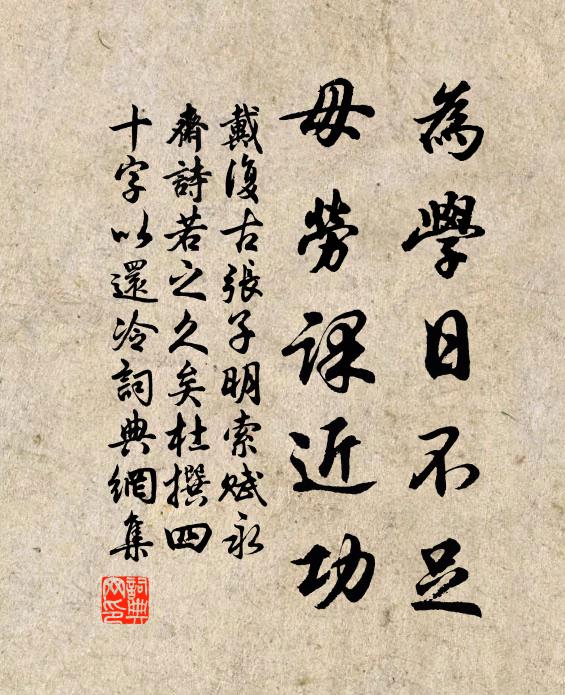 為學日不足
毋勞課近功
戴復古張子明索賦永
齋詩若之久矣杜撰四
十字以還冷詞典網集
詞典网印